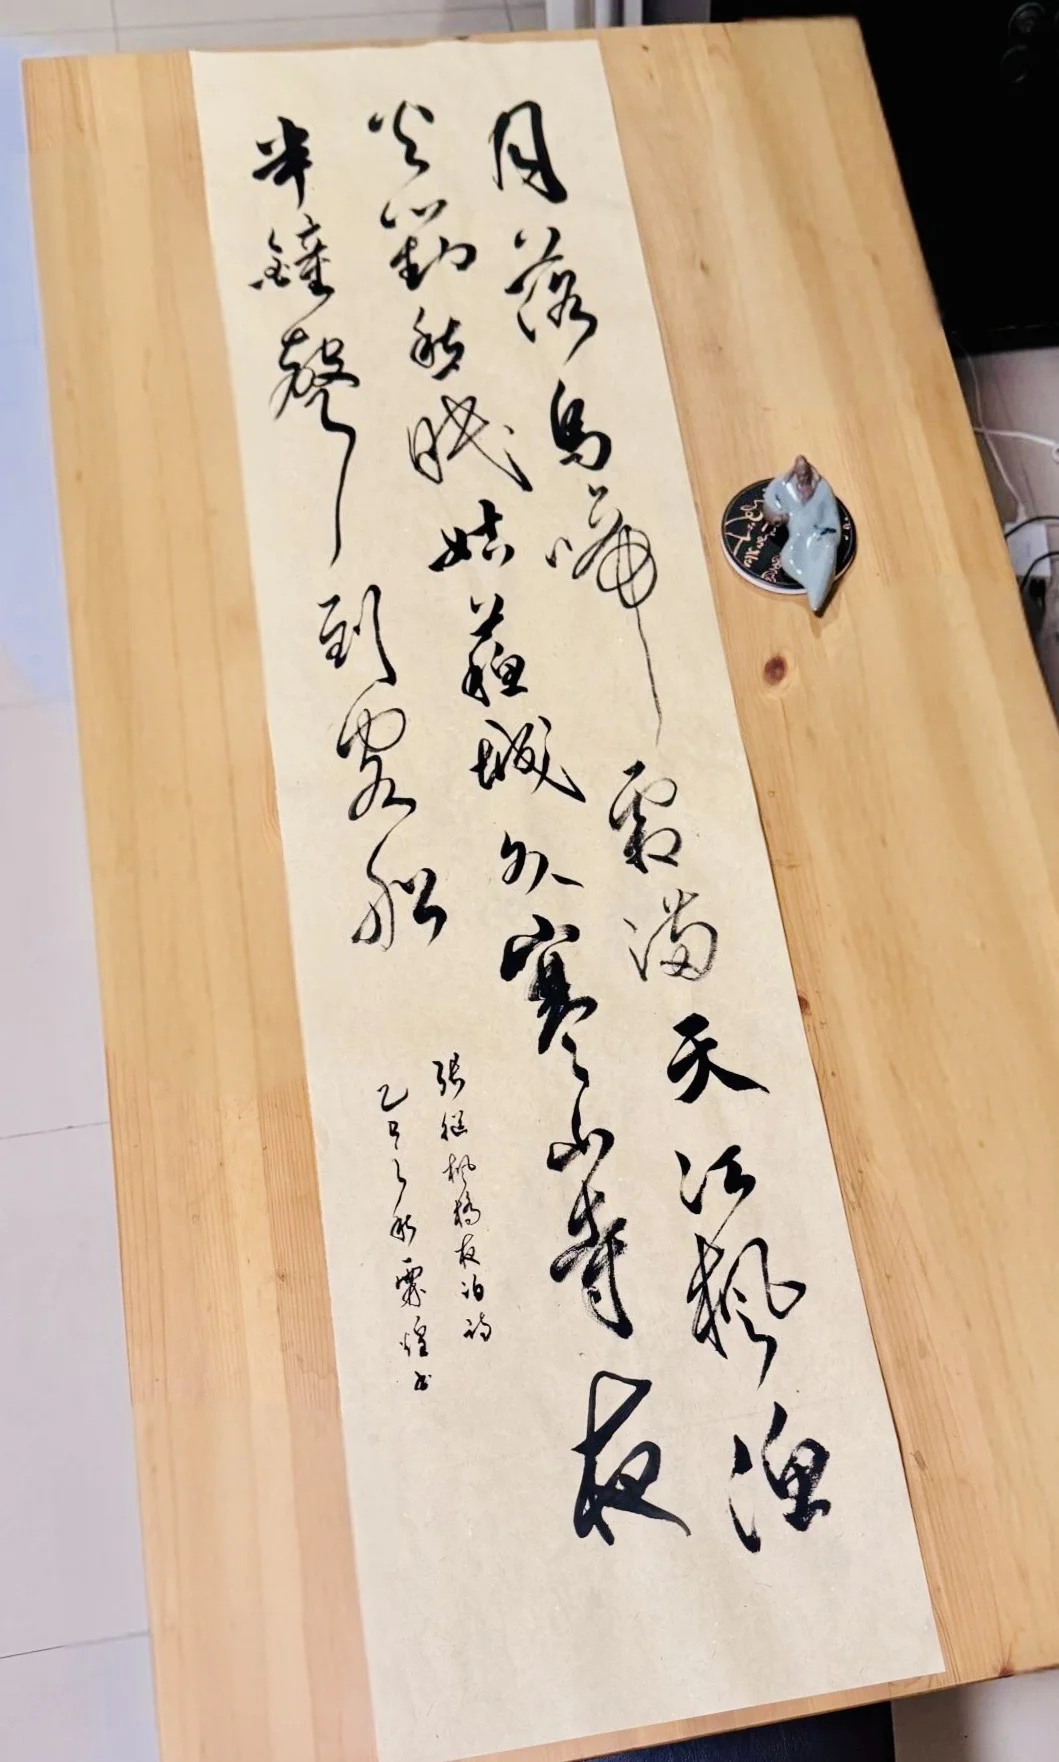 月落烏啼霜滿天江楓漁
火對愁眠姑蘇城外寒山寺夜
半鐘聲到客船
張継楓橋夜泊詩
乙巳之秋霖煌书